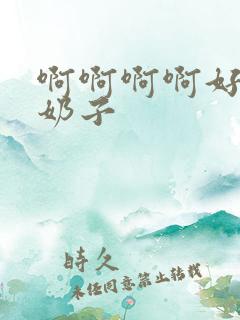 啊啊啊啊好
奶子
時久
未经同意禁止转载